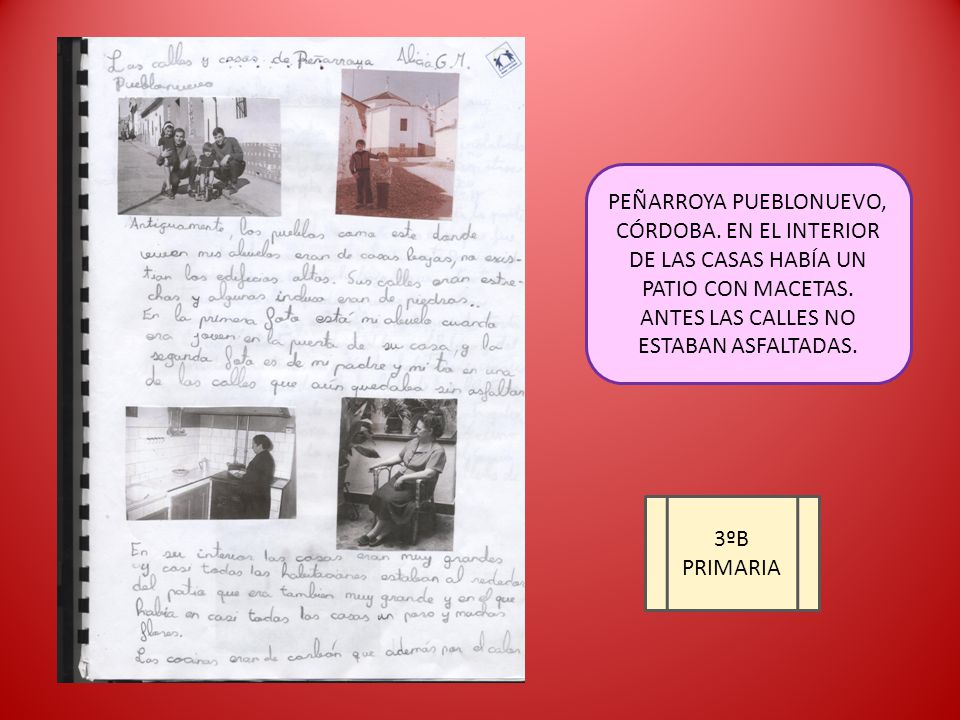 Las calles y casas de Peñarroya Alicia G.M.
Pueblonuevo
Antiguamente, los pueblos como este donde
viven mis abuelos eran de casas bajas, no exis-
tían los edificios altos. Sus calles eran estre-
chas y algunas incluso eran de piedras..
En la primera foto está mi abuelo cuando
era joven en la puerta de su casa, y la
segunda foto es de mi padre y mi tío en una
de las calles que aún quedaba sin asfaltar
En su interior las casas eran muy grandes
y casi todas las habitaciones estaban al rededor
del patio que era tambien muy grande y en el que
había en casi todas las casas un pozo y muchas
flores.
Las cocinas eran de carbón que además por el calor
PEÑARROYA PUEBLONUEVO,
CÓRDOBA. EN EL INTERIOR
DE LAS CASAS HABÍA UN
PATIO CON MACETAS.
ANTES LAS CALLES NO
ESTABAN ASFALTADAS.
3ºB
PRIMARIA